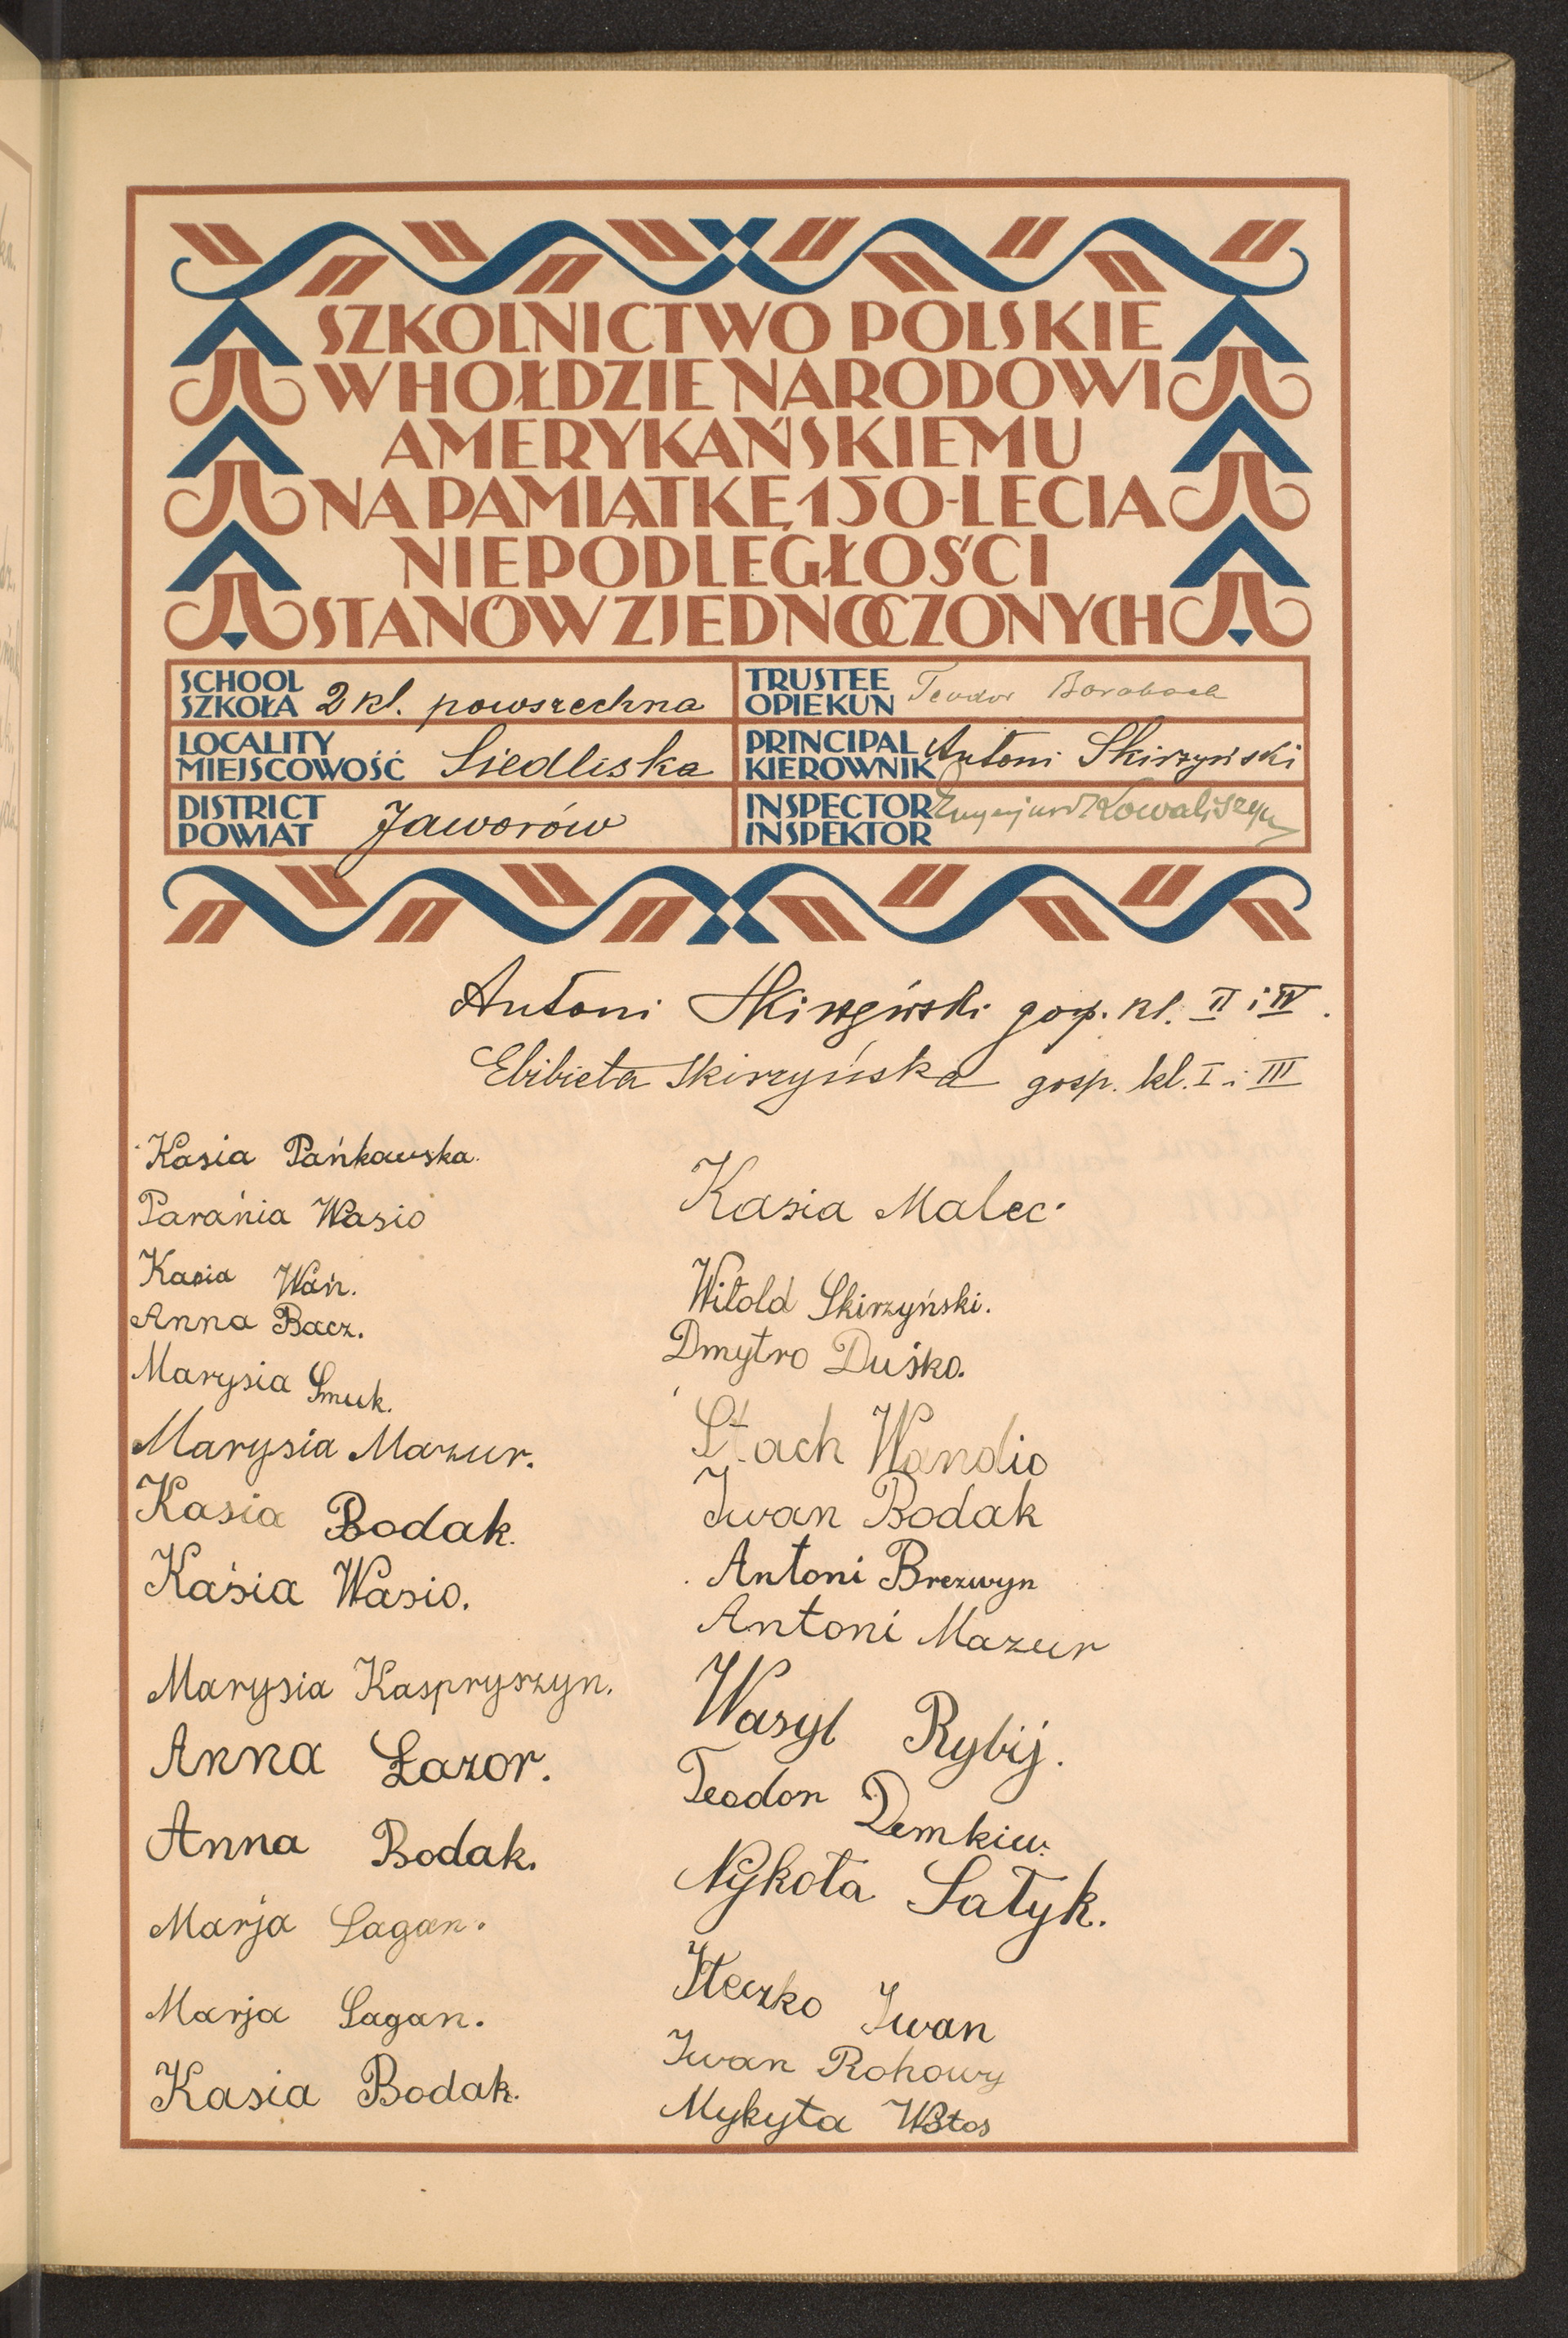 SZKOLNICTWO POLSKIE
W HOŁDZIE NARODOWI
AMERYKAŃSKIEMU
NA PAMIĄTKĘ 150-LECIA
NIEPODLEGŁOŚCI
STANÓW ZJEDNOCZONYCH
SCHOOL
SZKOŁA 2 kl. powszechna
TRUSTEE
OPIEKUN Teodor
LOCALITY
MIEJSCOWOŚĆ Siedliska
PRINCIPAL
KIEROWNIK Antoni Skirzyński
DISTRICT
POWIAT Jaworów
INSPECTOR
INSPEKTOR Kowaliszyn
Antoni Skirzyński gosp. kl. II i IV.
Elżbieta Skirzyńska gosp. kl. I i III
Kasia Pańkowska.
Parańia Wasio
Kasia Wań.
Anna Bacz.
Marysia Smuk.
Marysia Mazur.
Kasia Bodak.
Kaśia Wasio.
Marysia Kaspryszyn.
Anna Łazor.
Anna Bodak.
Marja Sagan.
Marja Sagan.
Kasia Bodak.
Kasia Malec.
Witold Skirzyński.
Dmytro Duśko.
Stach Wandio
Iwan Bodak
Antoni Brezwyn
Antoni Mazur
Wasyl Rybij.
Teodor Demkiw.
Nykoła Sałyk.
Iteczko Iwan
Iwan Rohowy
Mykyta